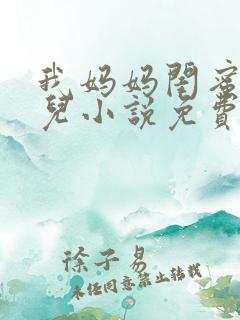 我妈妈閏蜜
兒小说免費
徐子易
未经同意禁止转载